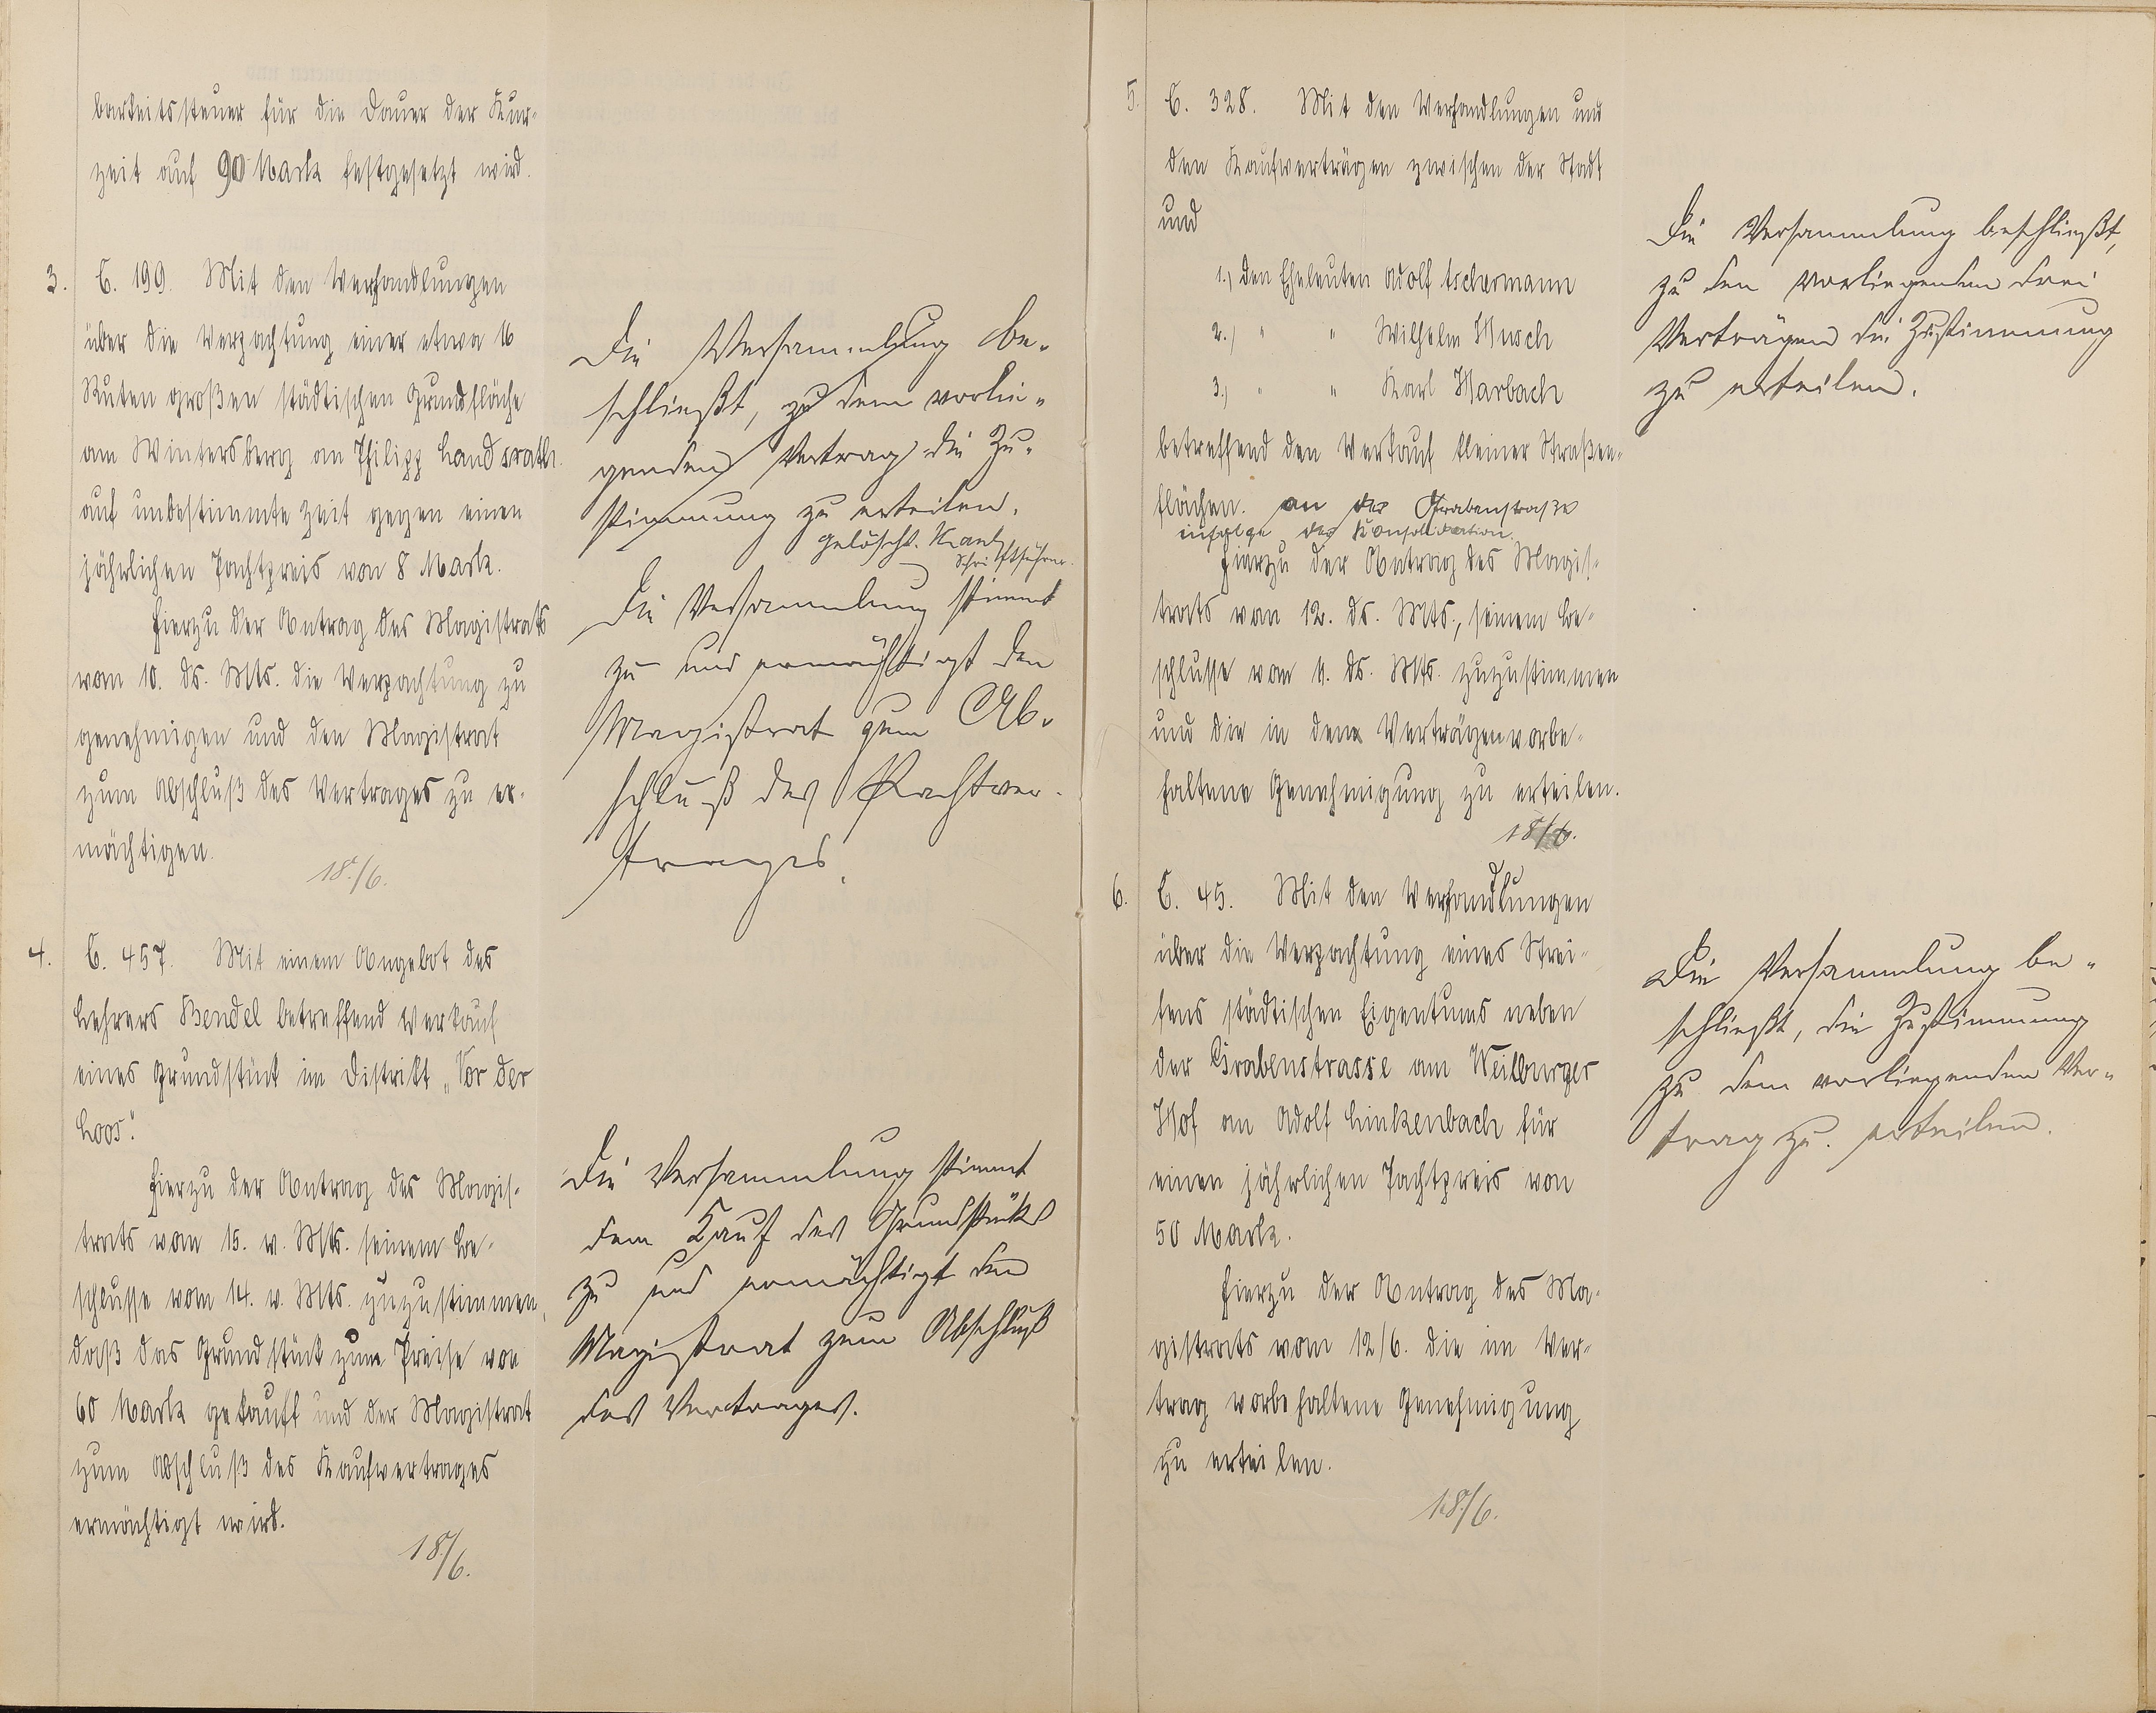 barkeitssteuer für die Dauer der Kur-
zeit auf 90 Mark festgesetzt wird.
3. C. 199. Mit den Verhandlungen
über die Verpachtung einer etwa 16
Ruten großen städtischen Grundfläche
am Wintersberg an Philipp Landsrath
auf unbestimmte Zeit gegen einen
jährlichen Pachtpreis von 8 Mark.
Hierzu der Antrag des Magistrats
vom 10. ds. Mts. die Verpachtung zu
genehmigen und den Magistrat
zum Abschluß des Vertrages zu er-
mächtigen.
18./6.
4. C. 457. Mit einem Angebot des
Lehrers Bendel betreffend Verkauf
eines Grundstück im Distrikt „Vor der
Loos".
Hierzu der Antrag des Magis-
trats vom 15. v. Mts. seinem Be-
schlusse vom 14. v. Mts. zuzustimmen,
daß das Grundstück zum Preise von
60 Mark gekauft und der Magistrat
zum Abschluß des Kaufvertrages
ermächtigt wird.
18./6.
Die Versammlung be-
schließt, zu dem vorlie-
genden Vertrag die Zu-
stimmung zu erteilen.
gelöscht.
Schriftführer.
Die Versammlung stimmt
zu und ermächtigt den
Magistrat zum Ab-
schluß des Pachtver-
trages.
Die Versammlung stimmt
dem Kauf des Grundstücks
zu und ermächtigt den
Magistrat zum Abschluß
des Vertrages.
5. C. 328. Mit den Verhandlungen und
den Kaufverträgen zwischen der Stadt
und
1.) den Eheleuten Adolf Aschermann
2.) " " Wilhelm Husch
3.) " " Karl Harbach
betreffend den Verkauf kleiner Straßen-
flächen. an der Grabenstraße
infolge der Konsolidation.
Hierzu der Antrag des Magis-
trats vom 12. ds. Mts., seinem Be-
schlusse vom 11. ds. Mts. zuzustimmen
und die in den Verträgen vorbe-
haltene Genehmigung zu erteilen.
18/6.
6. C. 45. Mit den Verhandlungen
über die Verpachtung eines Strei-
fens städtischen Eigentums neben
der Grabenstrasse am Weilburger
Hof an Adolf Linkenbach für
einen jährlichen Pachtpreis von
50 Mark.
Hierzu der Antrag des Ma-
gistrats vom 12/6. die im Ver-
trag vorbehaltene Genehmigung
zu erteilen.
18./6.
Die Versammlung beschließt,
zu den vorliegenden drei
Verträgen die Zustimmung
zu erteilen.
Die Versammlung be-
schließt, die Zustimmung
zu dem vorliegenden Ver-
trag zu erteilen.